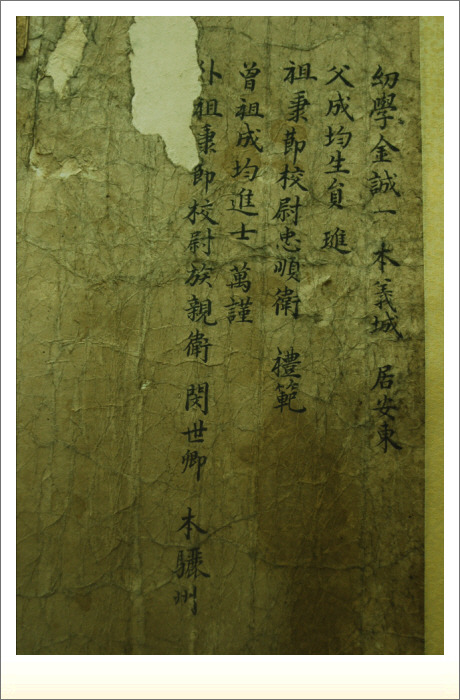 幼學金誠一 本義城 居安東
父成均生員 璡
祖秉節校尉忠順衛 禮範
曾祖成均進士 萬謹
外祖秉節校尉族親衛 閔世卿 本驪州